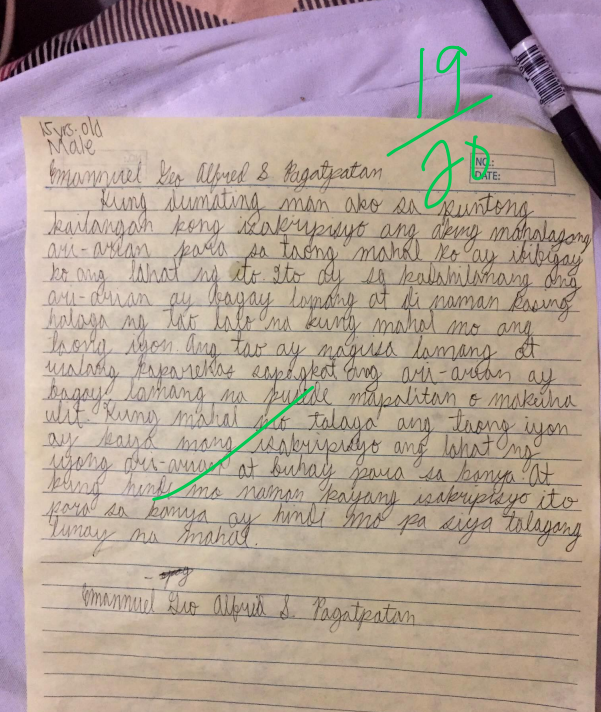 15 yrs. old
Male
19
20
NO.:
DATE:
Emannuel Geo Alfred S. Pagatpatan
Kung dumating man ako sa puntong
kailangan kong isakripisyo ang aking mahalagang
ari-arian para sa taong mahal ko ay ibibigay
ko ang lahat ng ito. Ito ay sa kadahilanang ang
ari-arian ay bagay lamang at di naman kasing
halaga ng tao lalo na kung mahal mo ang
taong iyon. Ang tao ay nagiisa lamang at
walang kaparehas sapagkat ang ari-arian ay
bagay lamang na pwede mapalitan o makuha
ulit. Kung mahal mo talaga ang taong iyon
ay kaya mong isakripisyo ang lahat ng
iyong ari-arian at buhay para sa kanya. At
kung hindi mo naman kayang isakripisyo ito
para sa kanya ay hindi mo pa siya talagang
tunay na mahal.
Emannuel Geo Alfred S. Pagatpatan